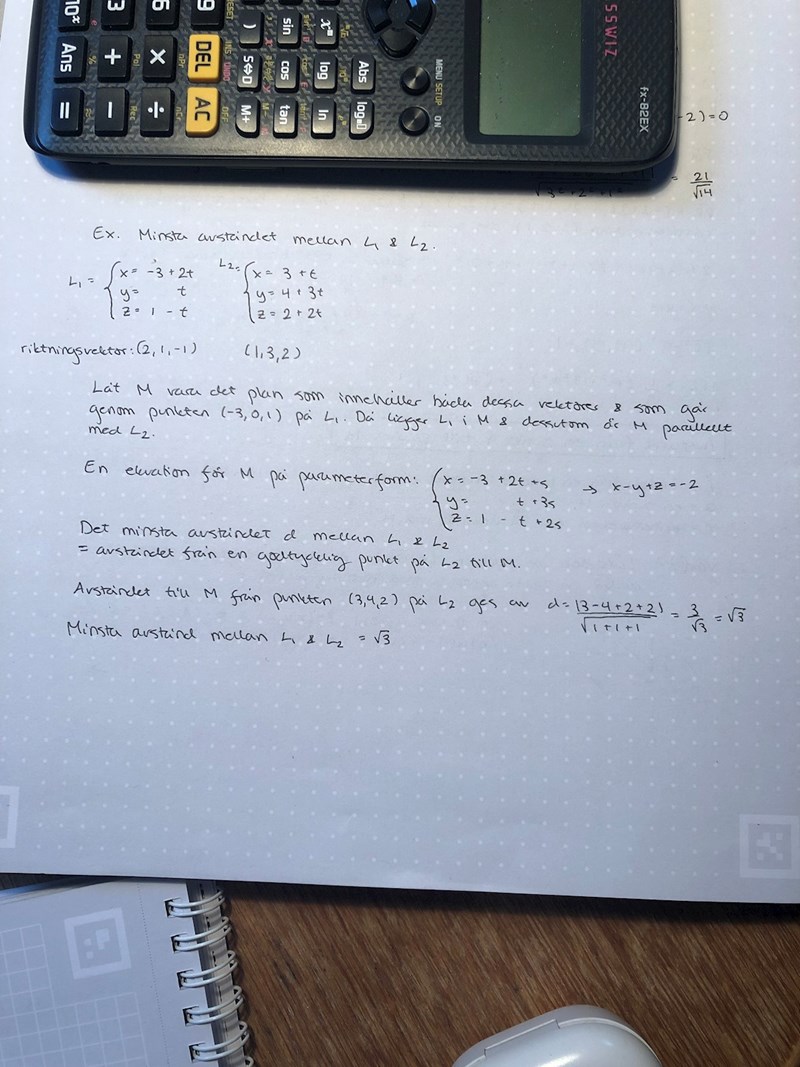 SSWIZ
fx-82EX
MENU SETUP ON
Abs log=[]
log ln
sin cos tan
) S⇔D M+
9 DEL AC
6 × ÷
3 + −
10ˣ Ans =
-2)=0
= 21/√14
Ex. Minsta avståndet mellan L₁ & L₂.
L₁ = { x = -3 + 2t L₂ = { x = 3 + t
y = t y = 4 + 3t
z = 1 - t z = 2 + 2t
riktningsvektor: (2, 1, -1) (1, 3, 2)
Låt M vara det plan som innehåller båda dessa vektorer & som går
genom punkten (-3, 0, 1) på L₁. Då ligger L₁ i M & dessutom är M parallellt
med L₂.
En ekvation för M på parameterform: { x = -3 + 2t + s → x-y+z = -2
y = t + 3s
z = 1 - t + 2s
Det minsta avståndet d mellan L₁ & L₂
= avståndet från en godtycklig punkt på L₂ till M.
Avståndet till M från punkten (3,4,2) på L₂ ges av d = |3-4+2+2|/√1+1+1 = 3/√3 = √3
Minsta avstånd mellan L₁ & L₂ = √3